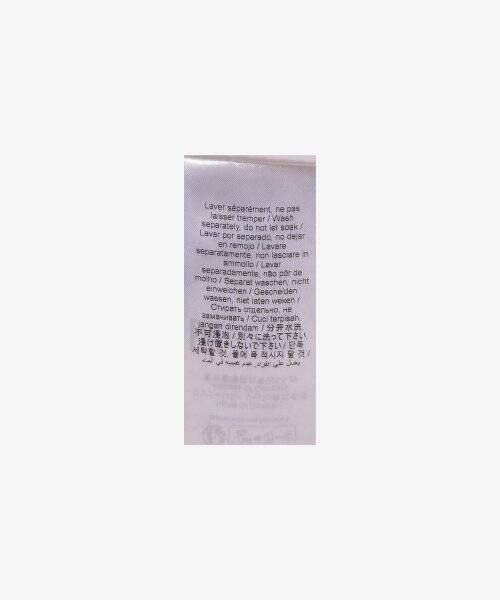 Laver séparément, ne pas
laisser tremper / Wash
separately, do not let soak /
Lavar por separado, no dejar
en remojo / Lavare
separatamente, non lasciare in
ammollo / Lavar
separadamente, não pôr de
molho / Separat waschen, nicht
einweichen / Gescheiden
wassen, niet laten weken /
Стирать отдельно, не
замачивать / Cuci terpisah,
jangan direndam / 分开水洗,
不可浸泡 / 別々に洗って下さい
浸け置きしないで下さい / 단독
세탁할 것, 물에 푹 적시지 말 것 /
يغسل على انفراد, عدم غمسه في الماء